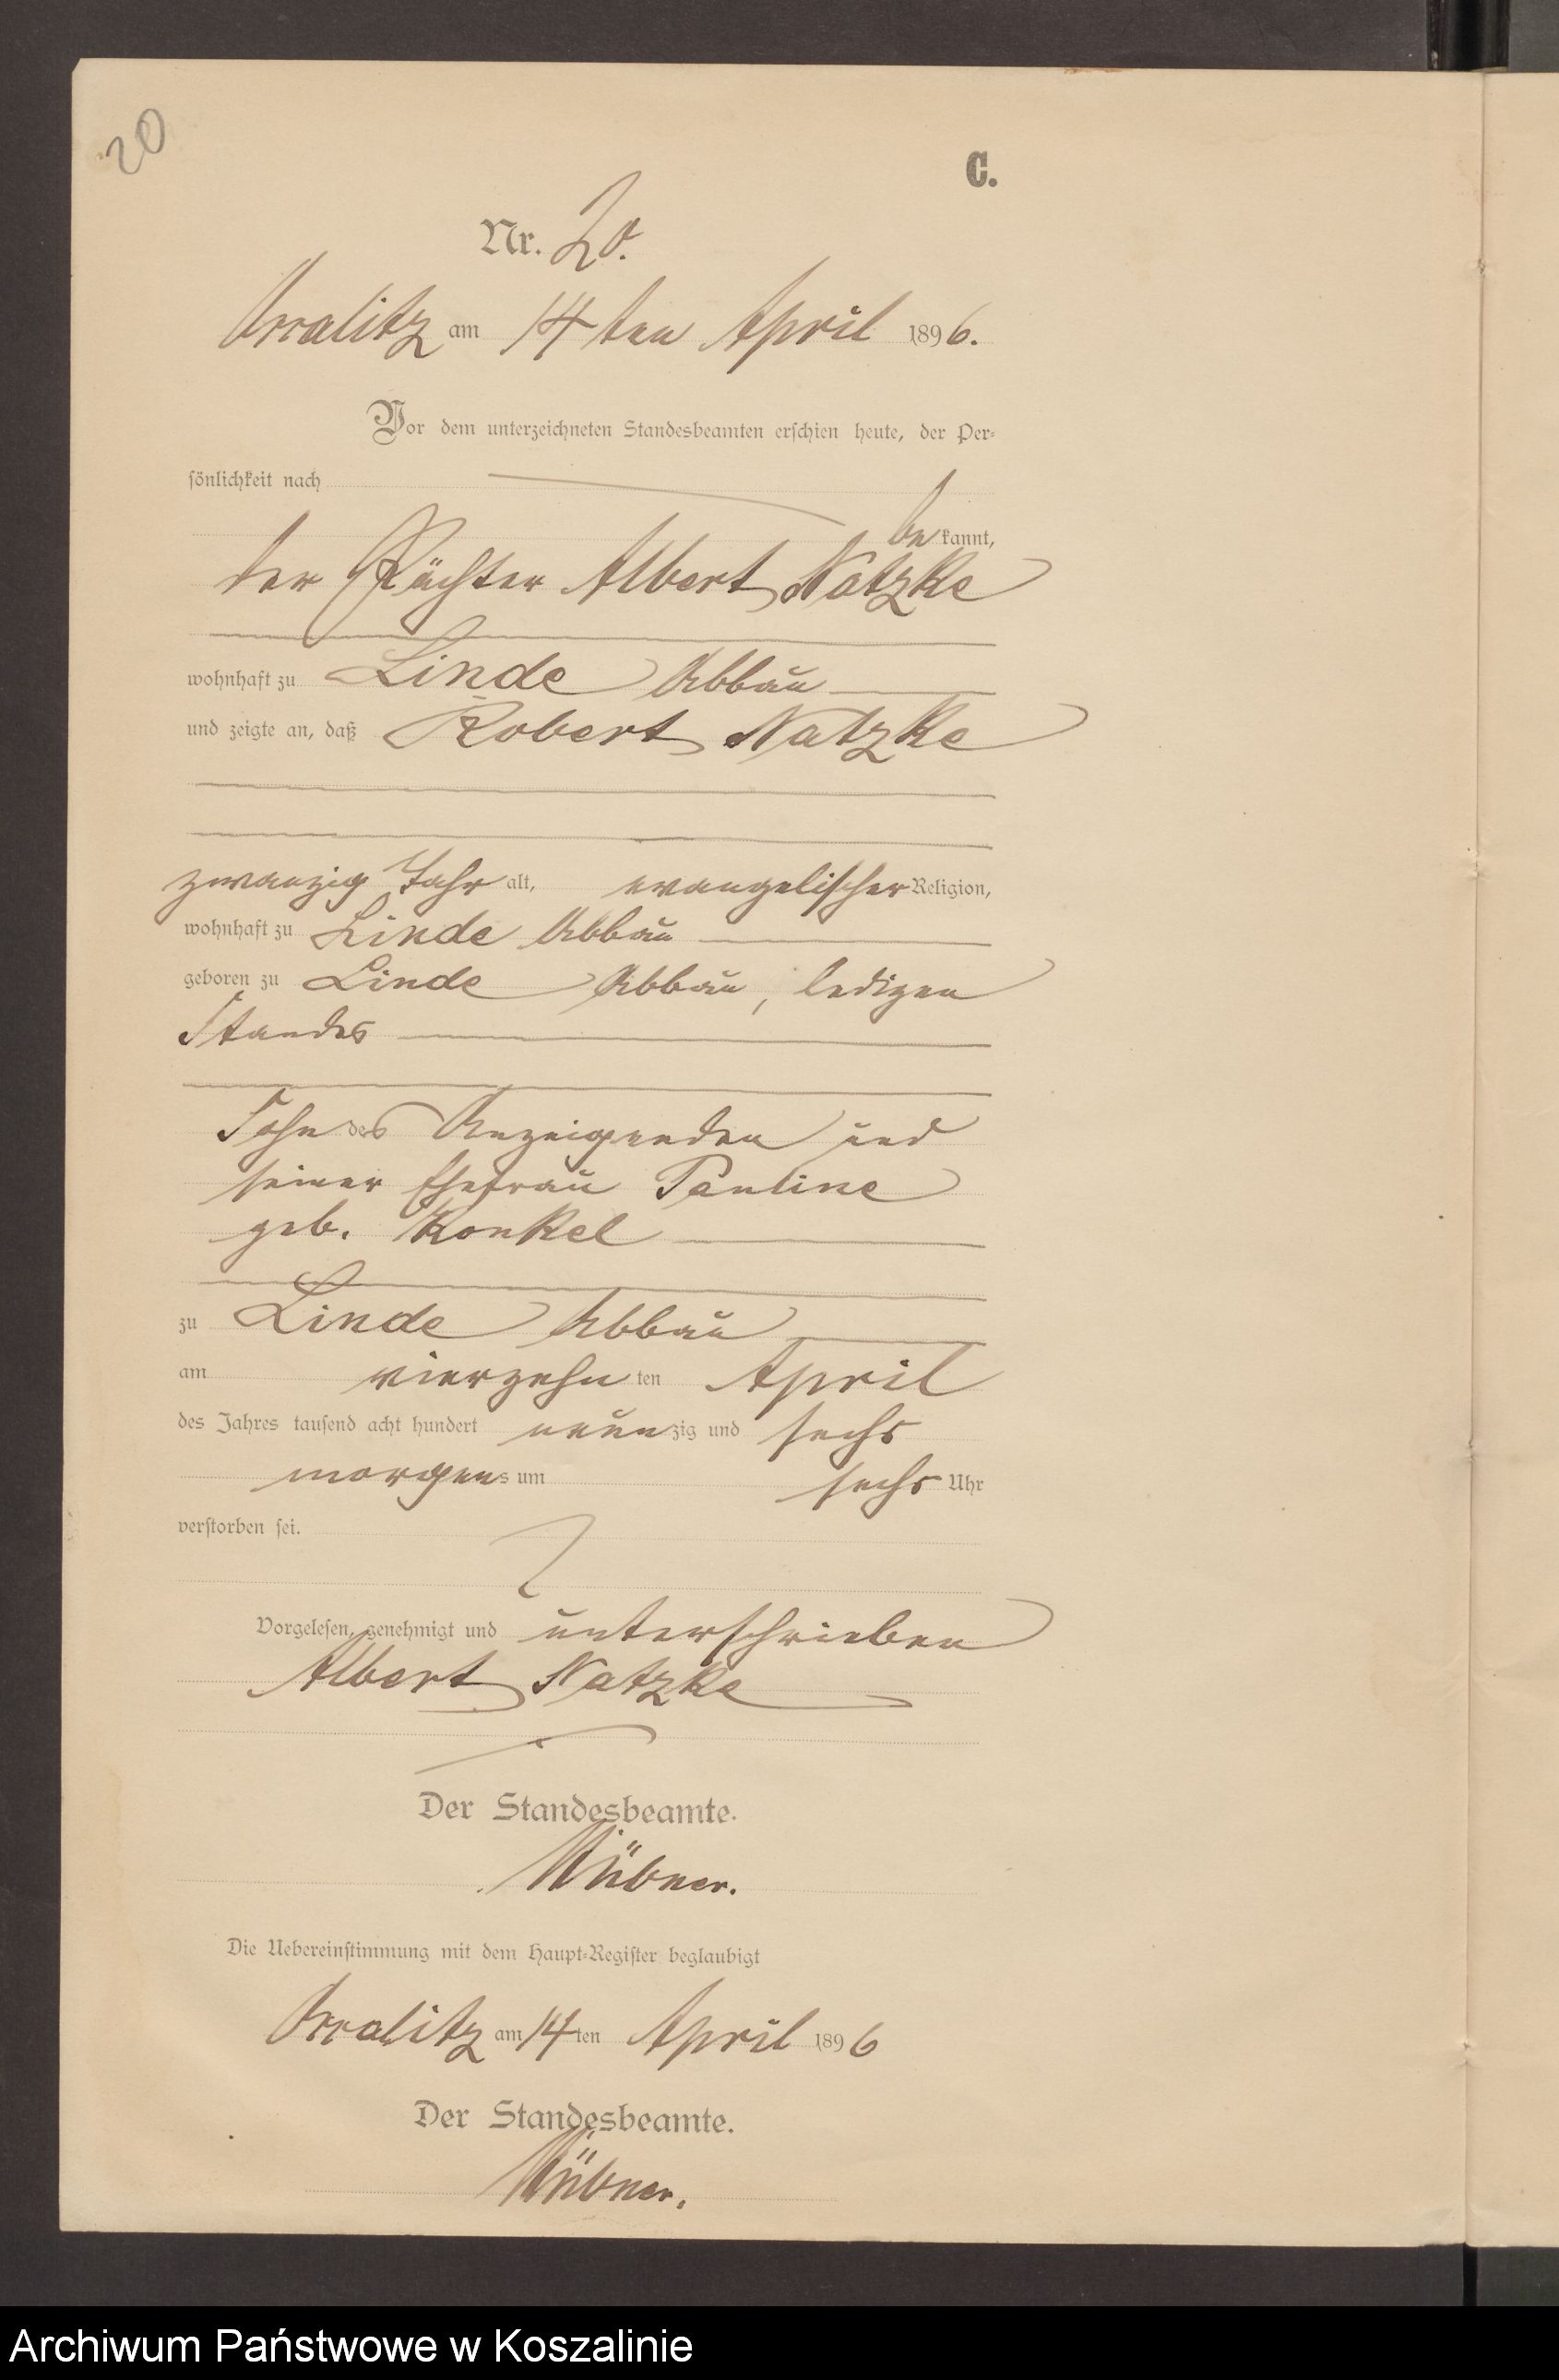 20
C.
Nr. 20.
Grralitz am 14 ten April 1896.
Vor dem unterzeichneten Standesbeamten erschien heute, der Per-
sönlichkeit nach
bekannt,
der Pächter Albert Natzke
wohnhaft zu Linde Abbau
und zeigte an, daß Robert Natzke
zwanzig Jahr alt, evangelischer Religion,
wohnhaft zu Linde Abbau
geboren zu Linde Abbau, ledigen
Standes
Sohn des Anzeigenden und
seiner Ehefrau Pauline
geb. Konkel
zu Linde Abbau
am vierzehnten April
des Jahres tausend acht hundert neunzig und sechs
morgens um sechs Uhr
verstorben sei.
Vorgelesen, genehmigt und unterschrieben
Albert Natzke
Der Standesbeamte.
Hübner.
Die Uebereinstimmung mit dem Haupt-Register beglaubigt
am 14ten April 1896
Der Standesbeamte.
Hübner.
Archiwum Państwowe w Koszalinie